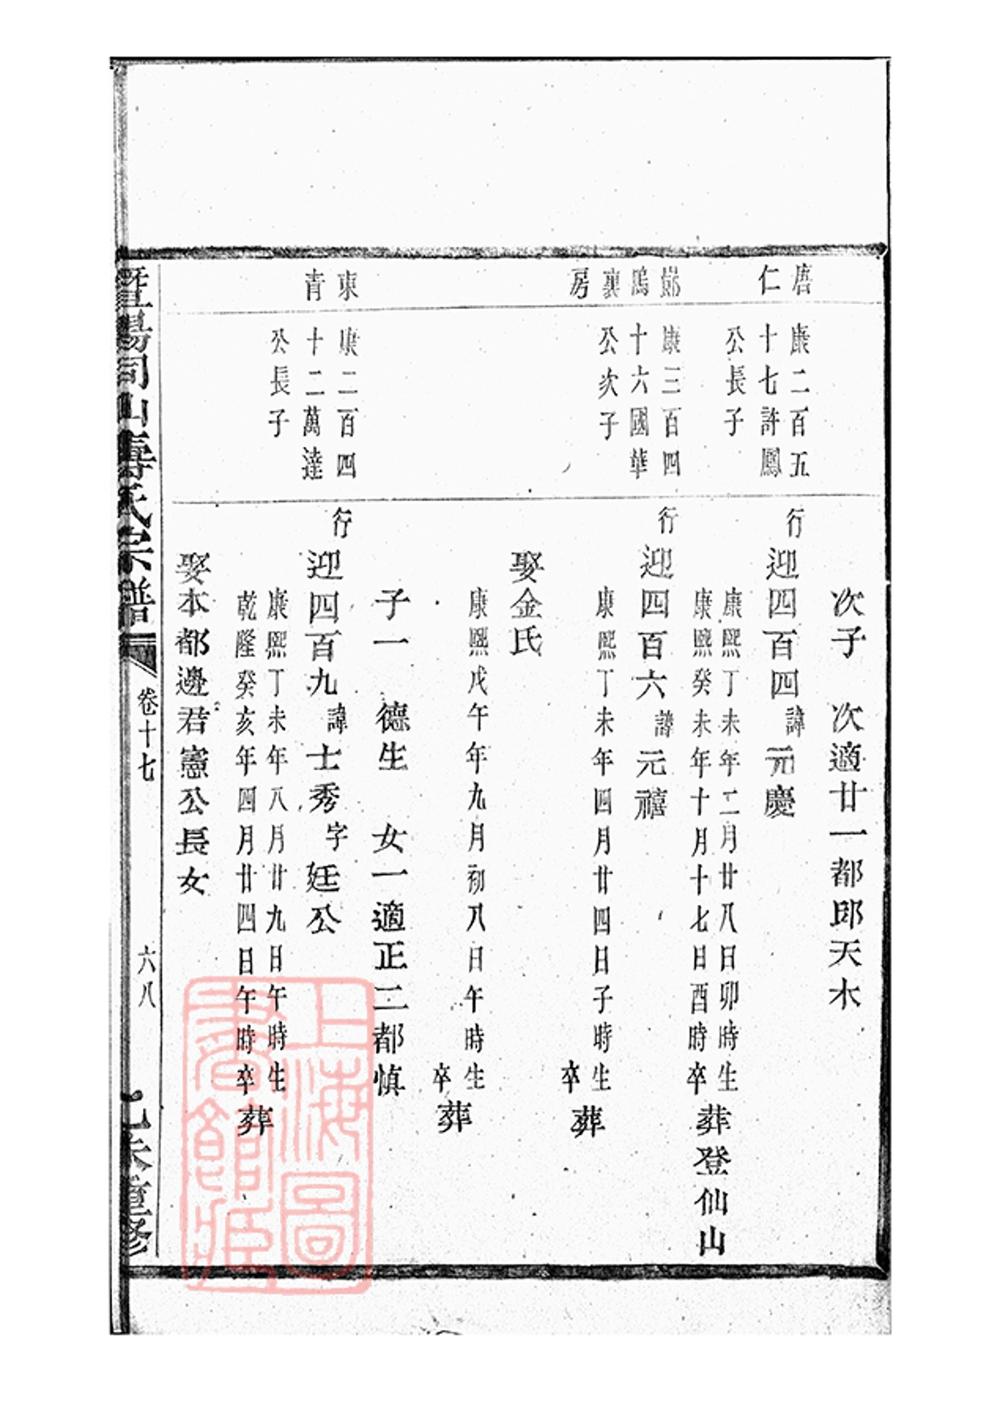 次子　次適廿一都邱天木
唐仁
康二百五
十七許鳳
公長子
行迎四百四諱元慶
康熙丁未年二月廿八日卯時生
康熙癸未年十月十七日酉時卒
葬登仙山
鄔鳴襄房
康三百四
十六國華
公次子
行迎四百六諱元禧
康熙丁未年四月廿四日子時生
卒
葬
娶金氏
康熙戊午年九月初八日午時生
卒
葬
子一　德生　女一適正二都慎
東青
康二百四
十二萬達
公長子
行迎四百九諱士秀字廷公
康熙丁未年八月廿九日午時生
乾隆癸亥年四月廿四日午時卒
葬
娶本都邊君憲公長女
暨陽同山壽氏宗譜
卷十七
六八
乙未重修
上海圖
書館藏